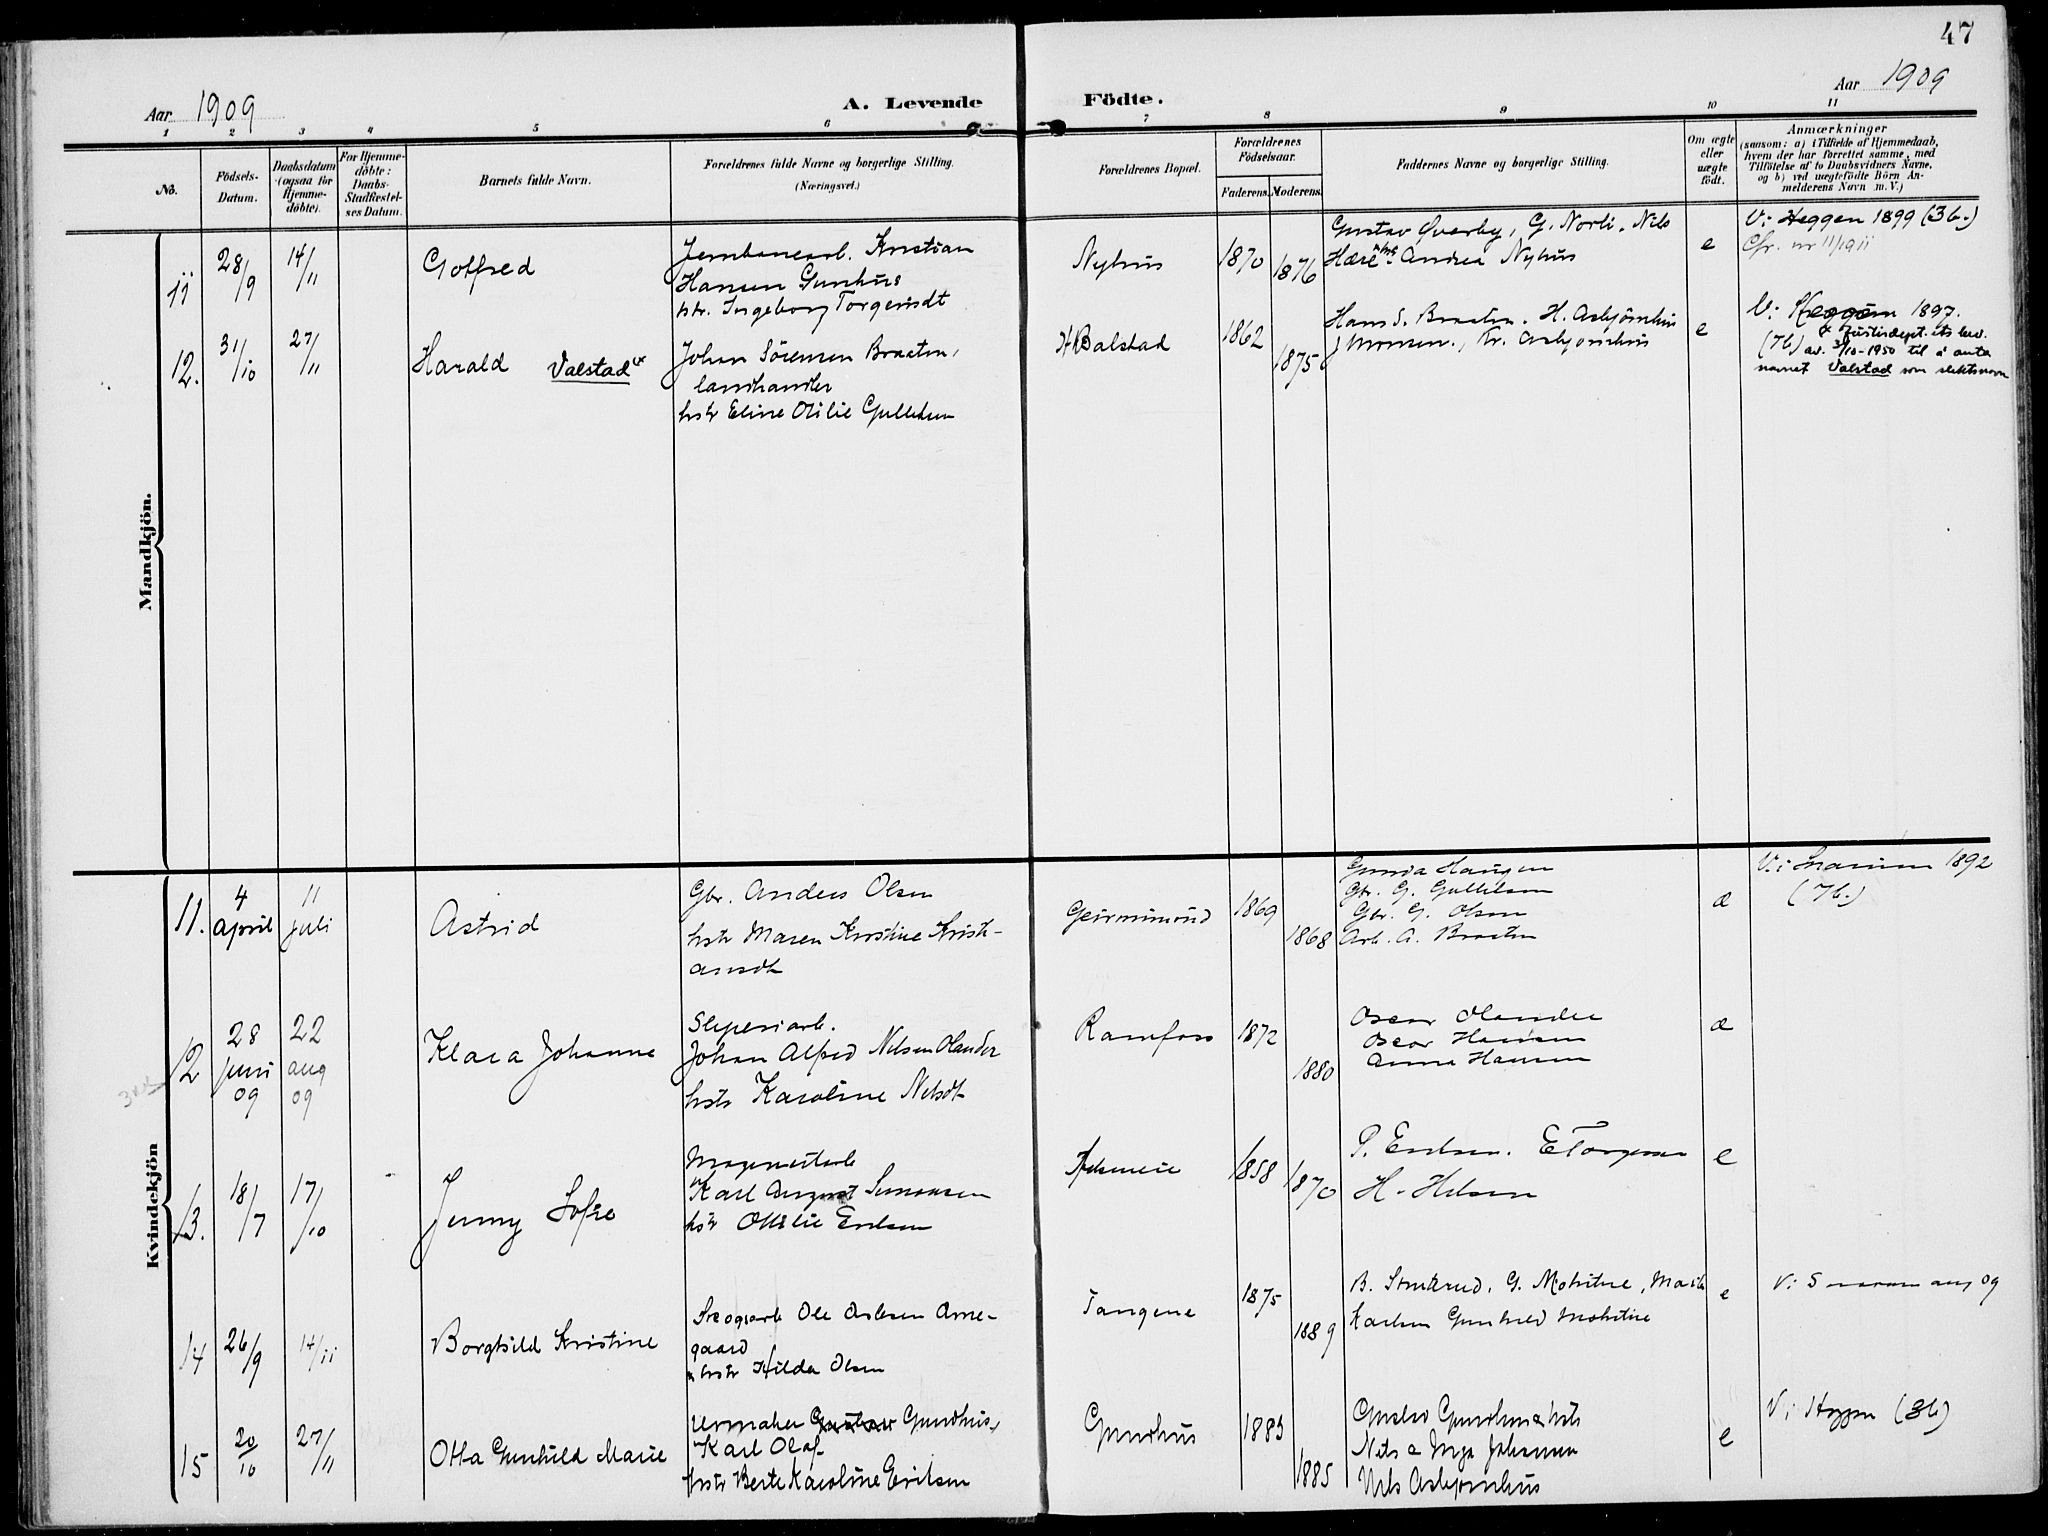 47
Aar 1909
A. Levende Födte.
Aar 1909
1 2 3 4 5 6 7 8 9 10 11
No.
Födsels-
Datum.
Daabsdatum
(ogsaa for
Hjemme-
döbte).
For Hjemme-
döbte:
Daabs-
Stadfæstel-
ses Datum.
Barnets fulde Navn.
Forældrenes fulde Navne og borgerlige Stilling.
(Næringsvei.)
Forældrenes Bopæl.
Forældrenes
Födselsaar.
Faderens. Moderens.
Faddernes Navne og borgerlige Stilling.
Om ægte
eller
uægte
födt.
Anmærkninger
(saasom: a) i Tilfælde af Hjemmedaab,
hvem der har forrettet samme, med
Tilföielse af to Daabsvidners Navne,
og b) ved uægtefödte Börn An-
melderens Navn m. V.)
Mandkjön.
11 28/9 14/11 Gotfred
Jernbanearb. Kristian
Hansen Gunhus
hstr. Ingeborg Torgersdt
Nyhus 1870 1876
Gustav Øverby, G. Norli, Nils
Andrea Nyhus
e
V: Heggen 1899 (3b.)
Cfr. nr 11/1911
12. 31/10 27/11 Harald Valstad x
Johan Sörensen Braaten,
landhandler
hstr Eline Otilie Gulliksen
Balstad 1862 1875
Hans S. Braaten. H. Asbjörnhus
J Monsen., Kr. Asbjörnhus
e
V: Heggen 1897.
(7b) x Justisdept. ets bev.
av. 3/10-1950 til å anta
navnet Valstad som slektsnavn
Kvindekjön
11. 4 april 11 juli Astrid
Gbr. Anders Olsen
hstr Maren Kristine Kristi-
ansdt
Geirmimrud 1869 1868
Gunda Haugen
Gbr. G. Gulliksen
Gbr. G. Olsen
Arb. A. Braaten
æ
V: Snarum 1892
(7b.)
12 28 juni 09 22 aug 09 Klara Johanne
Sliperiarb.
Johan Alfred Nilsen Olander
hstr Karoline Nilsdt
Ramfoss 1872 1880
Oscar Olander
Oscar Hansen
Anna Hansen
æ
13. 18/7 17/10 Jenny Sofie
Karl August Simonsen
hstr Ottilie Erilsen
1858 1870
P. Erilsen. E Torgersen
H. Hilsen
e
14 26/9 14/11 Borghild Kristine
Skogsarb Ole Aslesen Arne-
gaard
hstr Hilda Olsen
Tangene 1875 1889
B. Stensrud, G. Mohitue, Marie
Karlsen Gunhild Mohitue
e
V: Snarum aug 09
15 20/10 27/11 Otta Gunhild Marie
Urmaker Gustav Gundhus,
Karl Olaf
hstr Berte Karoline Eriksen
Gundhus 1883 1885
Gustav Gundhus & hstr
Nils & Inga Johansen
Nils Asbjörnhus
e
V: Heggen (3b)